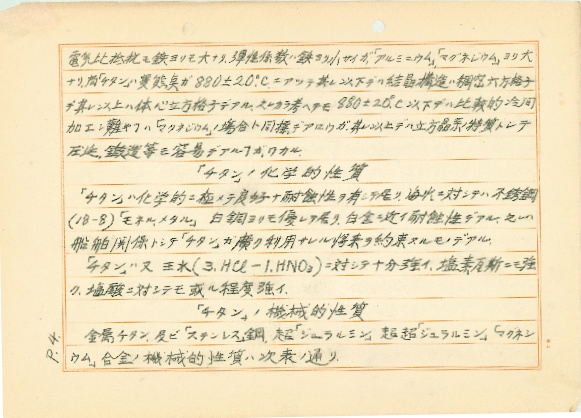 電気比抵抗モ鉄ヨリモ大ナリ、弾性係数ハ鉄ヨリ小サイガ、「アルミニウム」、「マグネシウム」ヨリ大
ナリ、尚「チタン」ハ変態点ガ880±20°Cニアツテ其レ以下デハ結晶構造ハ稠密六方格子
デ其レ以上ハ体心立方格子デアル、之カラ考ヘテモ880±20°C以下デハ比較的冷間
加工シ難ヤスハ「マグネシウム」ノ場合ト同様デアロウガ、其レ以上デハ立方晶系ノ特質トシテ
圧延、鍛造等ニ容易デアル事ガワカル、
「チタン」ノ化学的性質
「チタン」ハ化学的ニ極メテ良好ナ耐蝕性ヲ有シテ居リ、海水ニ対シテハ不銹鋼
(18-8)「モネルメタル」白銅ヨリモ優レテ居リ、白金ニ近イ耐蝕性デアル、
船舶関係トシテ「チタン」ガ廣ク利用サレル将来ヲ約束スルモノデアル、
「チタン」ハ又王水(3.HCl-1.HNO₃)ニ対シテ十分強イ、塩素瓦斯ニモ強
ク、塩酸ニ対シテモ或ル程度強イ、
「チタン」ノ機械的性質
金属チタン、及ビ「ステンレス」鋼、超「ジュラルミン」超超「ジュラルミン」、「マグネシ
ウム」合金ノ機械的性質ハ次表ノ通リ、
P.4.